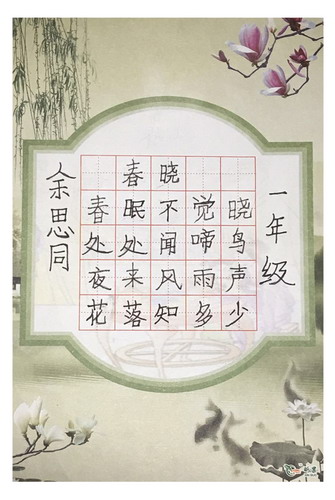 春晓
春眠不觉晓
处处闻啼鸟
夜来风雨声
花落知多少
一年级
余思同